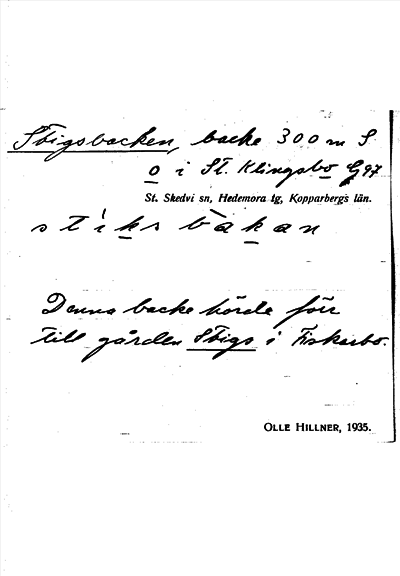 Stigsbacken, backe 300 m S
o i St. Klingsbo G 97
St. Skedvi sn, Hedemora tg, Kopparbergs län.
stiksbakan
Denna backe hörde förr
till gården Stigs i Fiskarbo.
OLLE HILLNER, 1935.